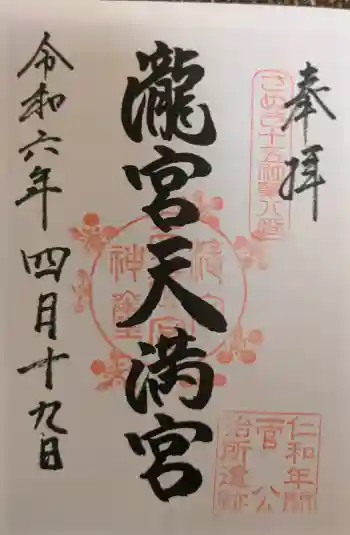 奉拝
さぬき十五社第八番
瀧宮天満宮
仁和年間
菅公
治所遺跡
令和六年四月十九日